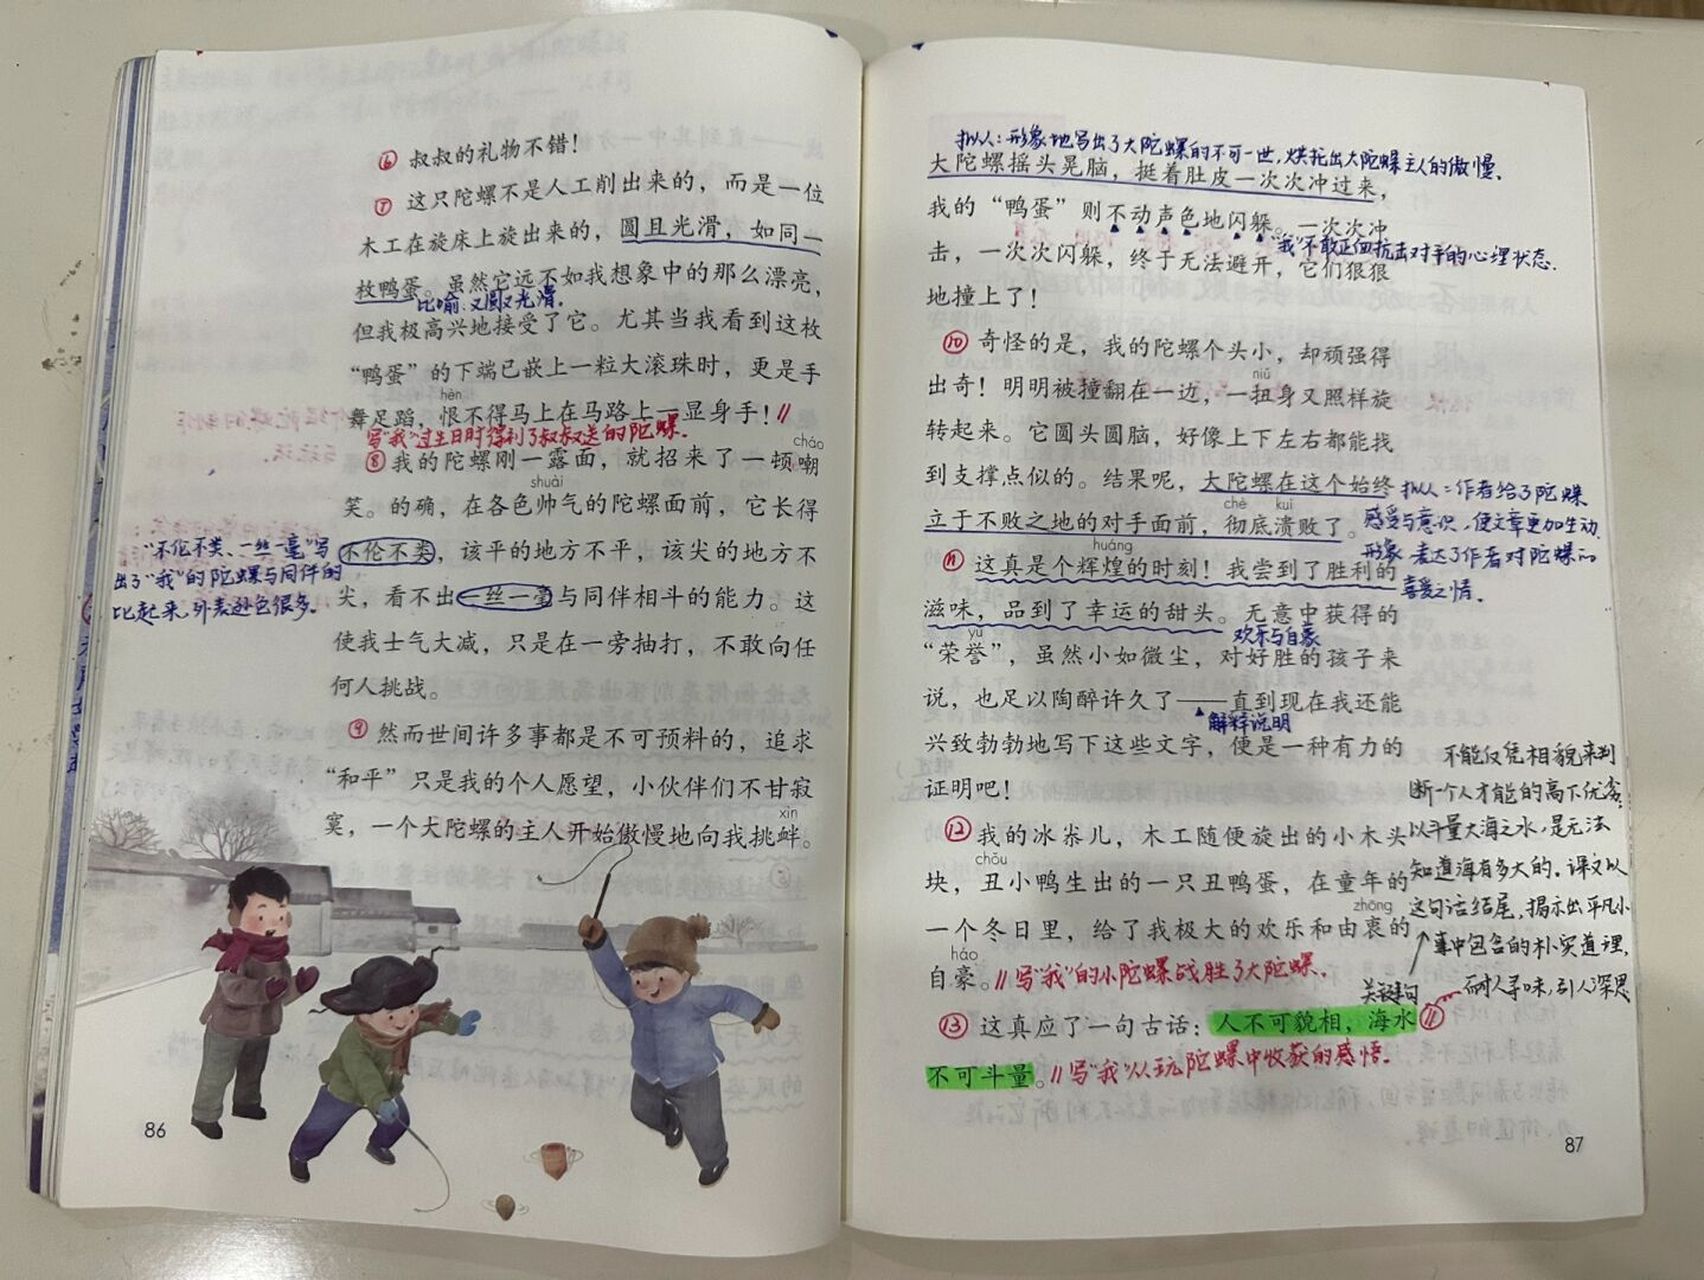 ⑥ 叔叔的礼物不错！
⑦ 这只陀螺不是人工削出来的，而是一位
木工在旋床上旋出来的，圆且光滑，如同一
枚鸭蛋。虽然它远不如我想象中的那么漂亮，
比喻：又圆又光滑.
但我极高兴地接受了它。尤其当我看到这枚
“鸭蛋”的下端已嵌上一粒大滚珠时，更是手
hèn
舞足蹈，恨不得马上在马路上一显身手！//
写“我”过生日时得到了叔叔送的陀螺.
cháo
⑧ 我的陀螺刚一露面，就招来了一顿嘲
shuài
笑。的确，在各色帅气的陀螺面前，它长得
不伦不类，该平的地方不平，该尖的地方不
尖，看不出一丝一毫与同伴相斗的能力。这
使我士气大减，只是在一旁抽打，不敢向任
何人挑战。
“不伦不类、一丝一毫”写
出了“我”的陀螺与同伴的
比起来，外表逊色很多。
⑨ 然而世间许多事都是不可预料的，追求
“和平”只是我的个人愿望，小伙伴们不甘寂
xìn
寞，一个大陀螺的主人开始傲慢地向我挑衅。
86
拟人：形象地写出了大陀螺的不可一世，烘托出大陀螺主人的傲慢、
大陀螺摇头晃脑，挺着肚皮一次次冲过来，
我的“鸭蛋”则不动声色地闪躲。一次次冲
“我”不敢正面抗击对手的心理状态.
击，一次次闪躲，终于无法避开，它们狠狠
地撞上了！
⑩ 奇怪的是，我的陀螺个头小，却顽强得
niǔ
出奇！明明被撞翻在一边，一扭身又照样旋
转起来。它圆头圆脑，好像上下左右都能找
到支撑点似的。结果呢，大陀螺在这个始终
chè kuì
立于不败之地的对手面前，彻底溃败了。
拟人：作者给了陀螺
感受与意识，使文章更加生动
形象 表达了作者对陀螺的
喜爱之情.
huáng
⑪ 这真是个辉煌的时刻！我尝到了胜利的
滋味，品到了幸运的甜头。无意中获得的
yù
欢乐与自豪
“荣誉”，虽然小如微尘，对好胜的孩子来
说，也足以陶醉许久了——直到现在我还能
解释说明
兴致勃勃地写下这些文字，便是一种有力的
证明吧！
⑫ 我的冰尜儿，木工随便旋出的小木头
chǒu
块，丑小鸭生出的一只丑鸭蛋，在童年的
zhōng
一个冬日里，给了我极大的欢乐和由衷的
háo
自豪。// 写“我”的小陀螺战胜了大陀螺.
不能仅凭相貌来判
断一个人才能的高下优劣.
以斗量大海之水，是无法
知道海有多大的。课文以
这句话结尾，揭示出平凡小
事中包含的朴实道理，
耐人寻味，引人深思
关键句
⑬ 这真应了一句古话：人不可貌相，海水
不可斗量。// 写“我”从玩陀螺中收获的感悟.
87